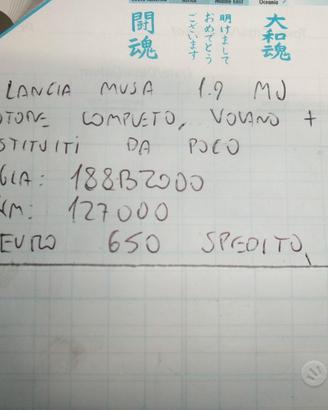 大和魂
明けまして
おめでとう
ございます
闘魂
LANCIA MUSA 1.9 MJ
OTORE COMPLETO, VOLANO +
STITUITI DA POCO
GLA: 188B2000
KM: 127000
EURO 650 SPEDITO